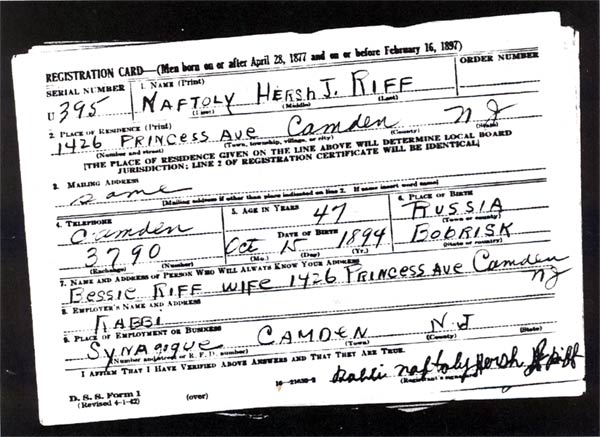 REGISTRATION CARD—(Men born on or after April 28, 1877 and on or before February 16, 1897)
SERIAL NUMBER 1. NAME (Print) ORDER NUMBER
U 395 NAFTOLY HERSH J. RIFF
(First) (Middle) (Last)
2. PLACE OF RESIDENCE (Print)
1426 PRINCESS AVE Camden NJ
(Number and street) (Town, township, village, or city) (County) (State)
[THE PLACE OF RESIDENCE GIVEN ON THE LINE ABOVE WILL DETERMINE LOCAL BOARD
JURISDICTION; LINE 2 OF REGISTRATION CERTIFICATE WILL BE IDENTICAL]
3. MAILING ADDRESS
Same
[Mailing address if other than place indicated on line 2. If same insert word same]
4. TELEPHONE 5. AGE IN YEARS 6. PLACE OF BIRTH
Camden 47 RUSSIA
(Town or county)
DATE OF BIRTH BOBRISK
3790 Oct 15 1894
(Exchange) (Number) (Mo.) (Day) (Yr.) (State or country)
7. NAME AND ADDRESS OF PERSON WHO WILL ALWAYS KNOW YOUR ADDRESS
BESSIE RIFF WIFE 1426 PRINCESS AVE Camden NJ
8. EMPLOYER'S NAME AND ADDRESS
RABBI
9. PLACE OF EMPLOYMENT OR BUSINESS
SYNAGOGUE CAMDEN N.J
(Number and street or R. F. D. number) (Town) (County) (State)
I AFFIRM THAT I HAVE VERIFIED ABOVE ANSWERS AND THAT THEY ARE TRUE.
Rabbi Naftoly Hersh J Riff
D. S. S. Form 1
(Revised 4-1-42) (over) (Registrant's signature)